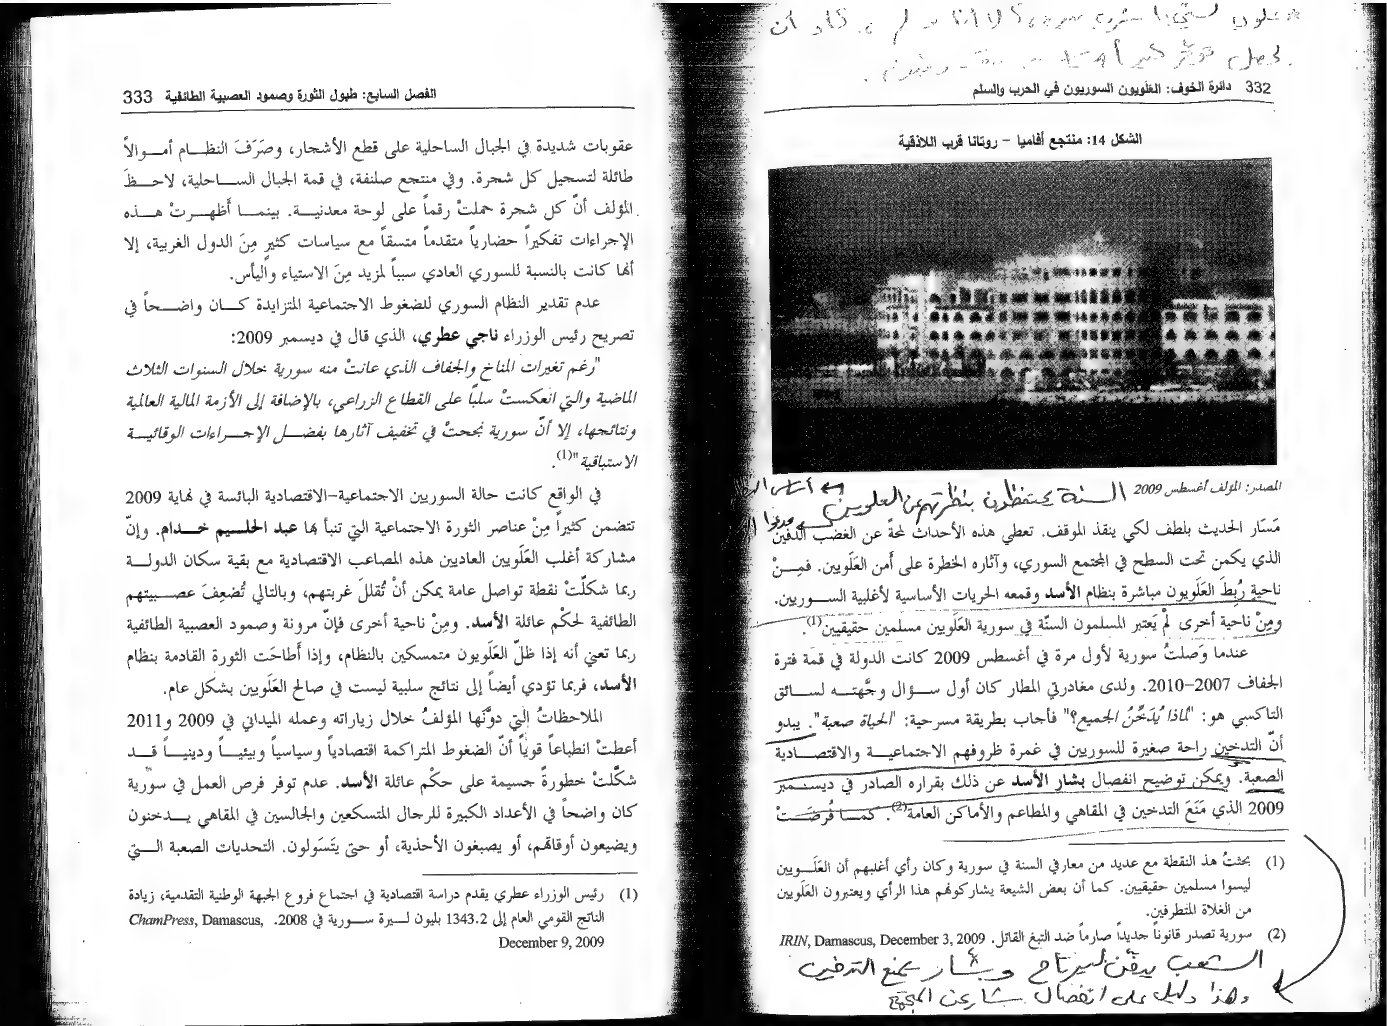 علويون
لم
كاد أن
يحصل
332 دائرة الخوف: العَلَويون السوريون في الحرب والسلم
الشكل 14: منتجع أفاميا – روتانا قرب اللاذقية
المصدر: المؤلف أغسطس 2009
السنة يحتفظون بنظرتهم عن العلويين
مَسَار الحديث بلطف لكي ينقذ الموقف. تعطي هذه الأحداث لمحةً عن الغضب الدفين
الذي يكمن تحت السطح في المجتمع السوري، وآثاره الخطرة على أمن العَلَويين. فمِـــنْ
ناحيةٍ رُبِطَ العَلَويون مباشرة بنظام الأسد وقمعه الحريات الأساسية لأغلبية الســـوريين.
ومِنْ ناحية أخرى لَمْ يَعتبر المسلمون السنّة في سورية العَلَويين مسلمين حقيقيين(1).
عندما وَصلتُ سورية لأول مرة في أغسطس 2009 كانت الدولة في قمة فترة
الجفاف 2007–2010. ولدى مغادرتي المطار كان أول ســـؤال وجَّهتـــه لســـائق
التاكسي هو: "لماذا يُدَخِّنُ الجميع؟" فأجاب بطريقة مسرحية: "الحياة صعبة". يبدو
أنّ التدخين راحة صغيرة للسوريين في غمرة ظروفهم الاجتماعيـــة والاقتصـــادية
الصعبة. ويمكن توضيح انفصال بشار الأسد عن ذلك بقراره الصادر في ديســـمبر
2009 الذي مَنَعَ التدخين في المقاهي والمطاعم والأماكن العامة(2). كمـــا فُرضَـــتْ
(1) بحثتُ هذ النقطة مع عديد من معارفي السنة في سورية وكان رأي أغلبهم أن العَلَـــويين
ليسوا مسلمين حقيقيين. كما أن بعض الشيعة يشاركونهم هذا الرأي ويعتبرون العَلَويين
من الغلاة المتطرفين.
(2) سورية تصدر قانوناً جديداً صارماً ضد التبغ القاتل. IRIN, Damascus, December 3, 2009
الشعب يدخن ليرتاح وبشار يمنع التدخين
وهذا دليل على انفصال بشار عن المجتمع
الفصل السابع: طبول الثورة وصمود العصبية الطائفية 333
عقوبات شديدة في الجبال الساحلية على قطع الأشجار، وصَرَفَ النظـــام أمـــوالاً
طائلة لتسجيل كل شجرة. وفي منتجع صلنفة، في قمة الجبال الســـاحلية، لاحـــظَ
المؤلف أنّ كل شجرة حملتْ رقماً على لوحة معدنيـــة. بينمـــا أظهـــرتْ هـــذه
الإجراءات تفكيراً حضارياً متقدماً متسقاً مع سياسات كثيرٍ مِنَ الدول الغربية، إلا
أنها كانت بالنسبة للسوري العادي سبباً لمزيد مِنَ الاستياء واليأس.
عدم تقدير النظام السوري للضغوط الاجتماعية المتزايدة كـــان واضـــحاً في
تصريح رئيس الوزراء ناجي عطري، الذي قال في ديسمبر 2009:
"رغم تغيرات المناخ والجفاف الذي عانتْ منه سورية خلال السنوات الثلاث
الماضية والتي انعكستْ سلباً على القطاع الزراعي، بالإضافة إلى الأزمة المالية العالمية
ونتائجها، إلا أنّ سورية نجحتْ في تخفيف آثارها بفضـــل الإجـــراءات الوقائيـــة
الاستباقية"(1).
في الواقع كانت حالة السوريين الاجتماعية–الاقتصادية البائسة في نهاية 2009
تتضمن كثيراً مِنْ عناصر الثورة الاجتماعية التي تنبأ بها عبد الحلـــيم خـــدام. وإنّ
مشاركة أغلب العَلَويين العاديين هذه المصاعب الاقتصادية مع بقية سكان الدولـــة
ربما شكلّتْ نقطة تواصل عامة يمكن أنْ تُقللَ غربتهم، وبالتالي تُضعِفَ عصـــبيتهم
الطائفية لحكْم عائلة الأسد. ومِنْ ناحية أخرى فإنّ مرونة وصمود العصبية الطائفية
ربما تعني أنه إذا ظلّ العَلَويون متمسكين بالنظام، وإذا أطاحَت الثورة القادمة بنظام
الأسد، فربما تؤدي أيضاً إلى نتائج سلبية ليست في صالح العَلَويين بشكل عام.
الملاحظاتُ التي دوّنَها المؤلفُ خلال زياراته وعمله الميداني في 2009 و2011
أعطتْ انطباعاً قوياً أنّ الضغوط المتراكمة اقتصادياً وسياسياً وبيئياً ودينيـــاً قـــد
شكّلتْ خطورةً جسيمة على حكْم عائلة الأسد. عدم توفر فرص العمل في سورية
كان واضحاً في الأعداد الكبيرة للرجال المتسكعين والجالسين في المقاهي يـــدخنون
ويضيعون أوقاتهم، أو يصبغون الأحذية، أو حتى يتَسَولون. التحديات الصعبة الـــتي
(1) رئيس الوزراء عطري يقدم دراسة اقتصادية في اجتماع فروع الجبهة الوطنية التقدمية، زيادة
الناتج القومي العام إلى 1343.2 بليون لـــيرة ســـورية في 2008. ChamPress, Damascus,
December 9, 2009